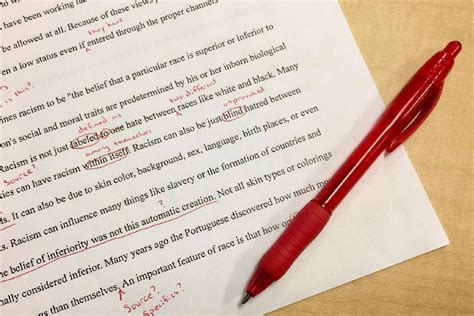 have been working
through the proper channels
be allowed at all. Because of these views
they have
en a low status even if entered through the proper channels
is this?
ines racism to be “the belief that a particular race is superior to inferior to
on's social and moral traits are predetermined by his or her inborn biological
defined as two different unprovoked
Racism is not just labeled to one hate between races like white and black. Many
among themselves
sies can have racism within itself. Racism can also be just blind hatred between
Source?
s. It can also be due to skin color, background, sex, language, birth places, or even
. Racism can influence many things like slavery or the formation of countries and
?
he belief of inferiority was not this automatic creation. Not all skin types or colorings
nally considered inferior. Many years ago the Portuguese discovered how much
ons than themselves. An important feature of race is that how or
Source?
Specifics?